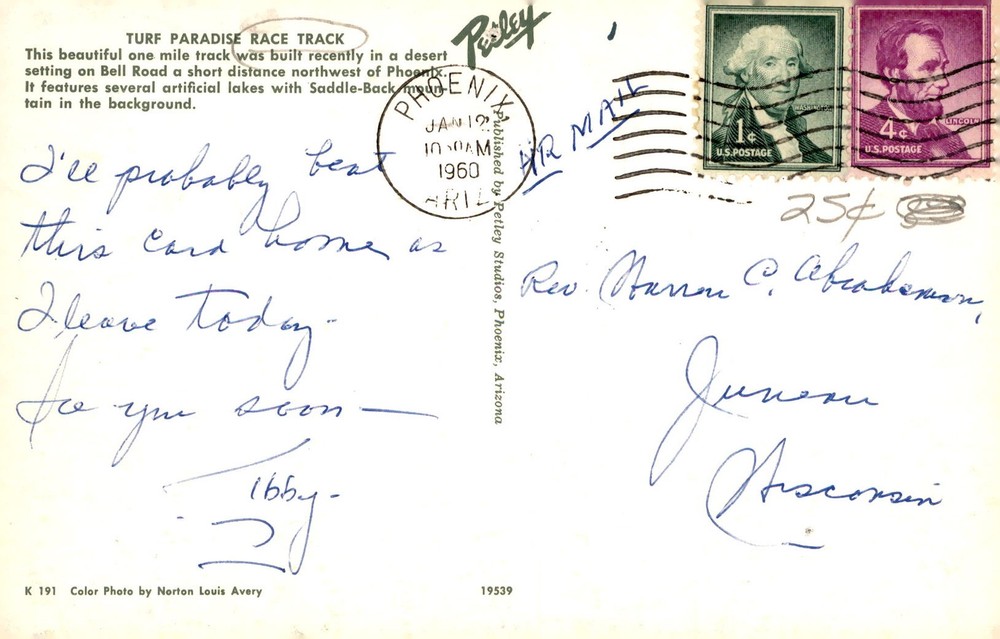 TURF PARADISE RACE TRACK
This beautiful one mile track was built recently in a desert
setting on Bell Road a short distance northwest of Phoenix.
It features several artificial lakes with Saddle-Back moun-
tain in the background.
I'll probably beat
this card home as
I leave today-
See you soon—
Tibby-
K 191 Color Photo by Norton Louis Avery
Petley
PHOENIX,
JAN 12
10 30 AM
1960
ARIZ.
Published by Petley Studios, Phoenix, Arizona
19539
AIR MAIL
WASHINGTON
1¢
U.S. POSTAGE
LINCOLN
4¢
U.S. POSTAGE
25¢
Rev. Warren C. Abrahamson,
Juneau
Wisconsin